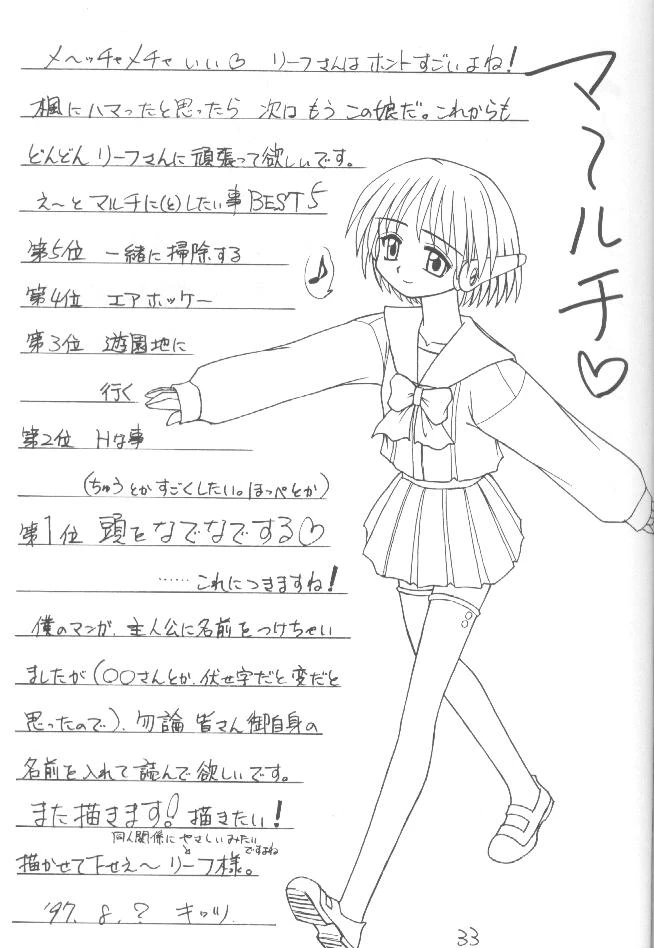 メ〜ッチャメチャ いい♡ リーフさんは ホントすごいよね!
楓にハマったと思ったら 次は もう この娘だ。これからも
どんどん リーフさんに 頑張って欲しいです。
え〜と マルチに(と)したい事 BEST5
第5位 一緒に掃除する
第4位 エアホッケー
第3位 遊園地に
行く
第2位 Hな事
(ちゅうとかすごくしたい。ほっぺとか)
第1位 頭をなでなでする♡
……これにつきますね!
僕のマンガ、主人公に名前をつけちゃい
ましたが(○○さんとか、伏せ字だと変だと
思ったので)、勿論 皆さん御自身の
名前を入れて読んで欲しいです。
また描きます! 描きたい!
同人関係に やさしいみたい
ですよね
描かせて下せえ〜 リーフ様。
'97. 8. ? キッツ
マルチ♡
♪
33